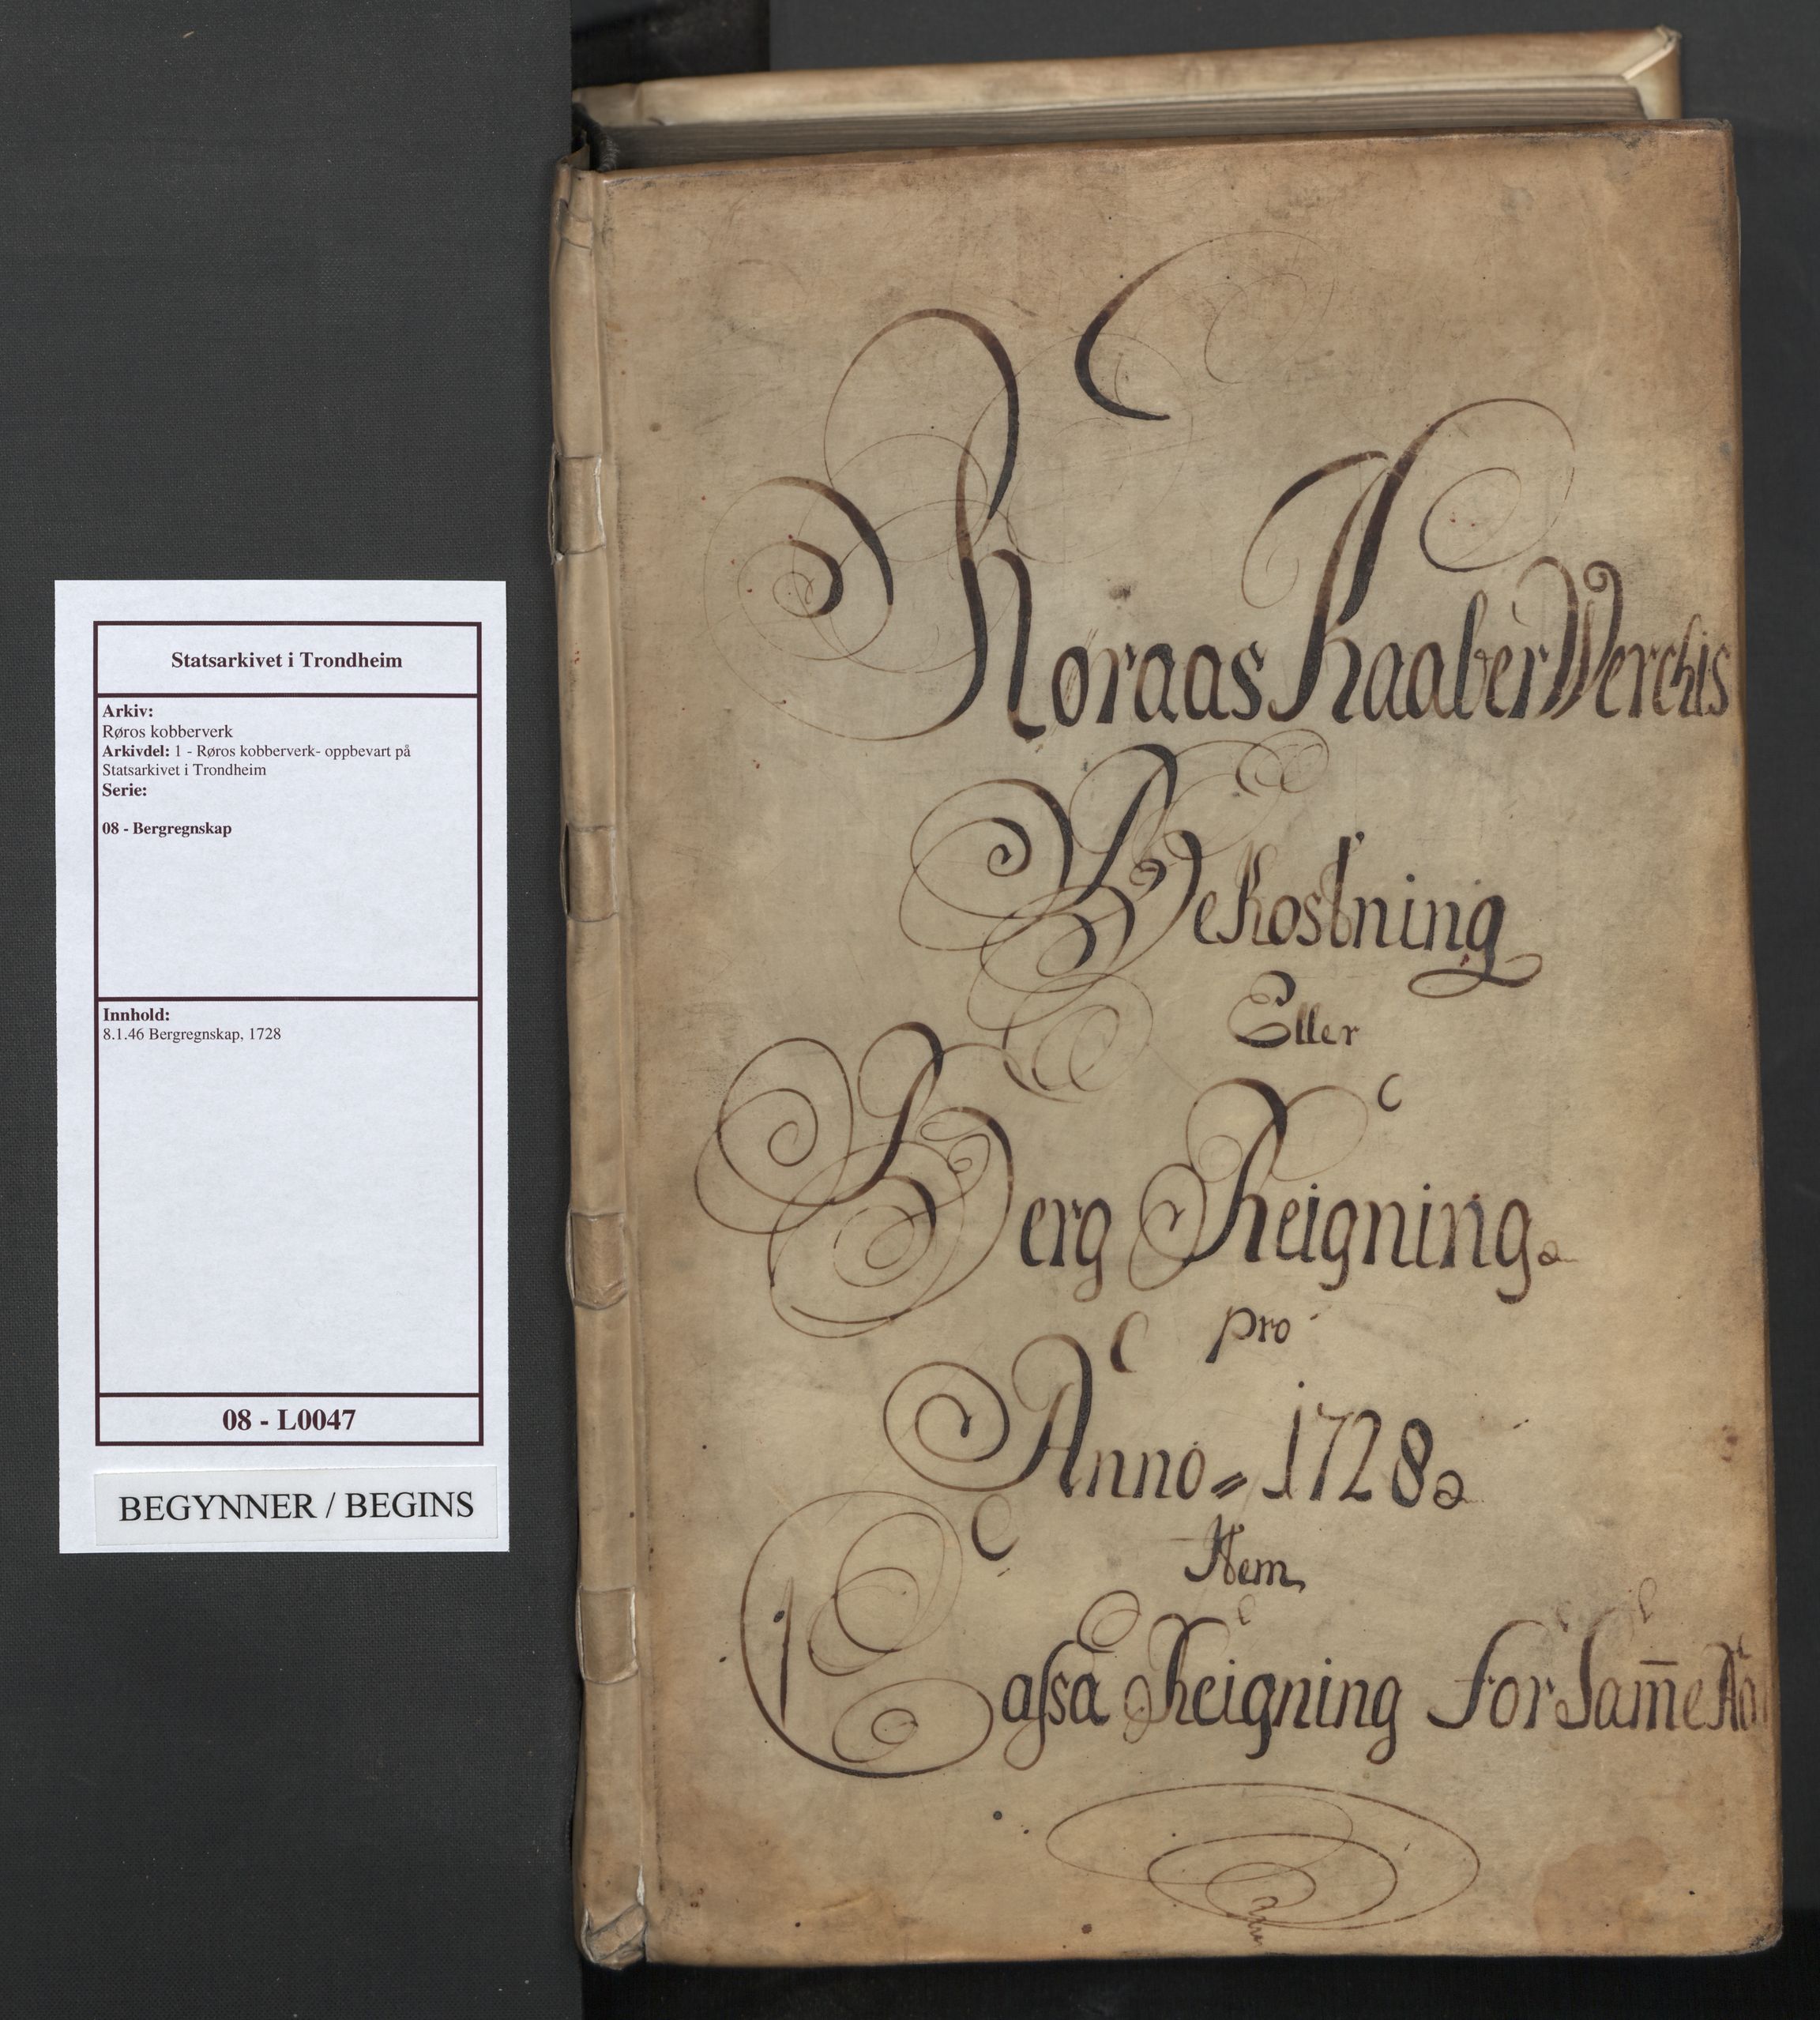 Statsarkivet i Trondheim
Arkiv:
Røros kobberverk
Arkivdel: 1 - Røros kobberverk- oppbevart på
Statsarkivet i Trondheim
Serie:
08 - Bergregnskap
Innhold:
8.1.46 Bergregnskap, 1728
08 - L0047
BEGYNNER / BEGINS
Røraas Kaaber Werchs
Bekostning
Eller
Berg Reigning
pro
Anno 1728
Item
Cassa Reigning for Sam̄e